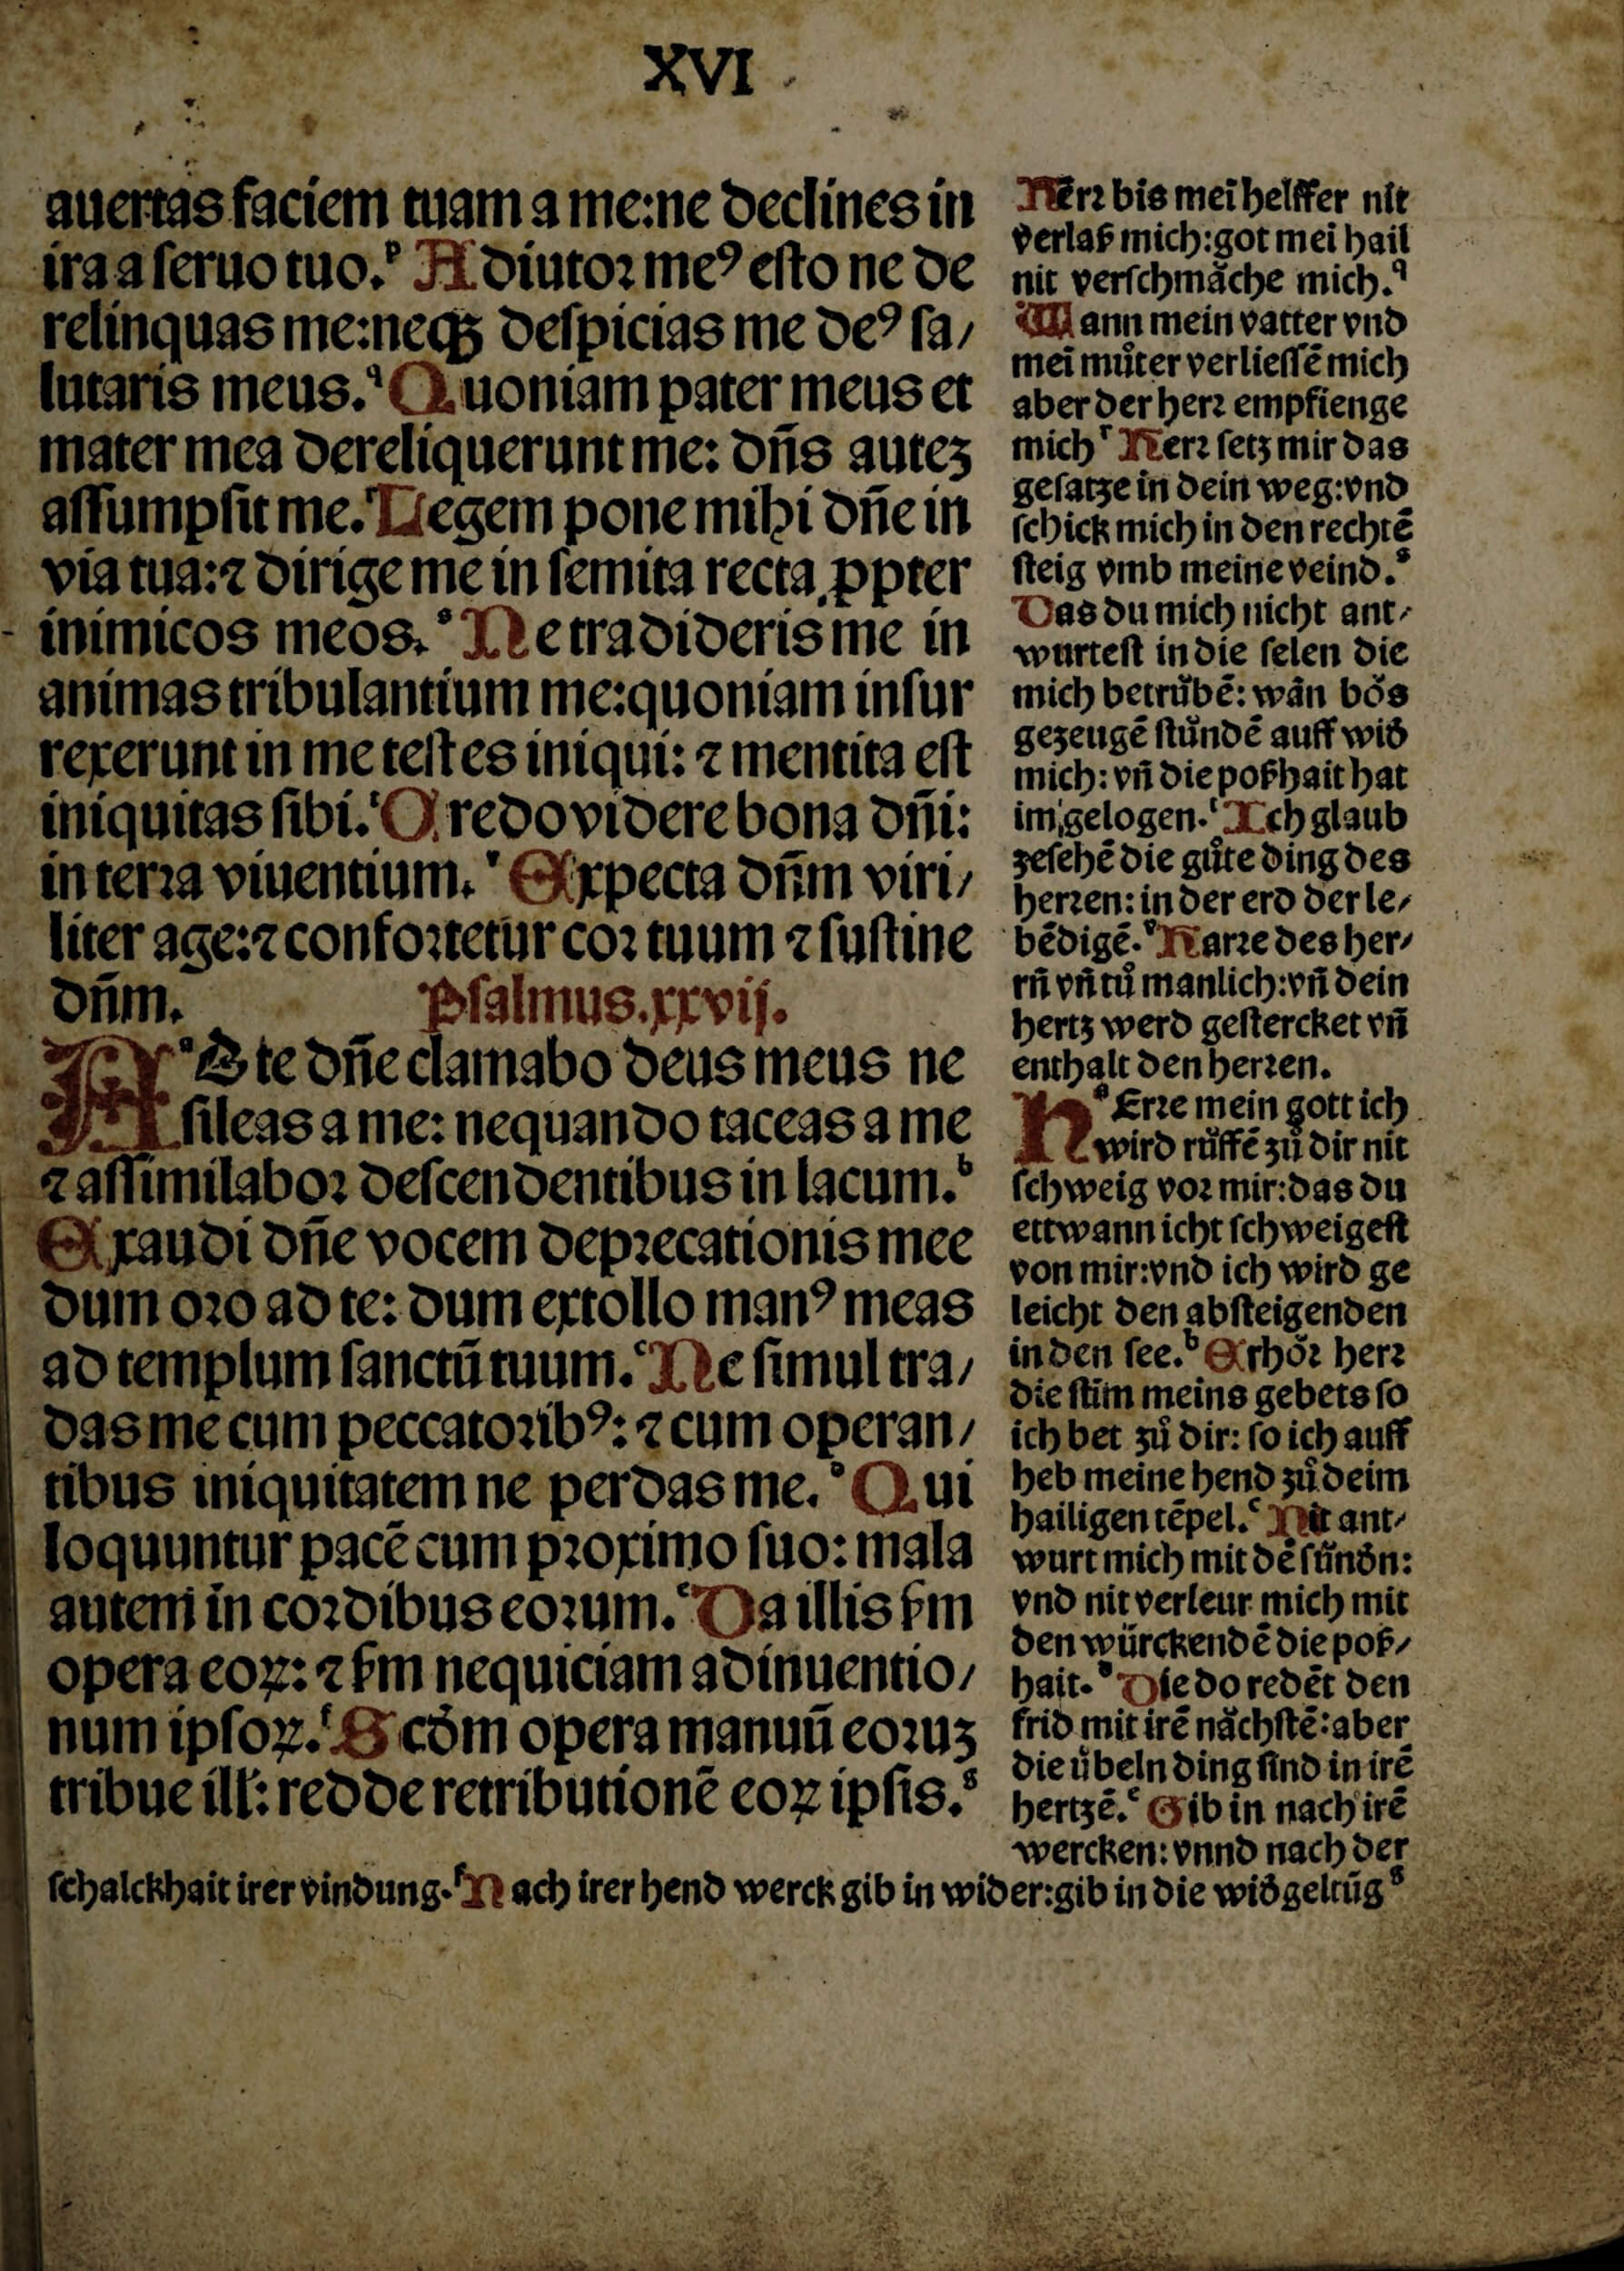 XVI
auertas faciem tuam a me:ne declines in
ira a ſeruo tuo.ᵖ Adiutoꝛ meꝰ eſto ne de
relinquas me:neqꝫ deſpicias me deꝰ ſa/
lutaris meus.ᑫ Quoniam pater meus et
mater mea dereliquerunt me: dn̄s auteꝫ
aſſumpſit me.ʳ Legem pone mihi dn̄e in
via tua:⁊ dirige me in ſemita recta ꝓpter
inimicos meos.ˢ Ne tradideris me in
animas tribulantium me:quoniam inſur
rexerunt in me teſtes iniqui: ⁊ mentita eſt
iniquitas ſibi.ᵗ Credo videre bona dn̄i:
in terꝛa viuentium.ᵛ Expecta dn̄m viri/
liter age:⁊ confoꝛtetur coꝛ tuum ⁊ ſuſtine
dn̄m. Pſalmus.xxvij.
ᵃAD te dn̄e clamabo deus meus ne
ſileas a me: nequando taceas a me
⁊ aſſimilaboꝛ deſcendentibus in lacum.ᵇ
Exaudi dn̄e vocem depꝛecationis mee
dum oꝛo ad te: dum extollo manꝰ meas
ad templum ſanctū tuum.ᶜ Ne ſimul tra/
das me cum peccatoꝛibꝰ: ⁊ cum operan/
tibus iniquitatem ne perdas me.ᵈ Qui
loquuntur pacē cum pꝛoximo ſuo: mala
autem in coꝛdibus eoꝛum.ᵉ Da illis ẜm
opera eoꝝ: ⁊ ẜm nequiciam adinuentio/
num ipſoꝝ.ᶠ Scd̓m opera manuū eoꝛuꝫ
tribue ill̓: redde retributionē eoꝝ ipſis.ᵍ
Hērꝛ bis mei̅ helffer nit
verlaß mich:got mei̅ hail
nit verſchmaͤche mich.ᑫ
Wann mein vatter vnd
mei̅ muͦter verlieſſē mich
aber der herꝛ empfienge
michʳ Herꝛ ſetz mir das
geſatze in dein weg:vnd
ſchick mich in den rechtē
ſteig vmb meine veind.ˢ
Das du mich nicht ant/
wurteſt in die ſelen die
mich betruͤbē: wān boͤs
gezeugē ſtuͤndē auff wid̓
mich: vn̄ die poßhait hat
im gelogen.ᵗ Ich glaub
zeſehē die guͦte ding des
herꝛen: in der erd der le/
bēdigē.ᵛ Harꝛe des her/
rn̄ vn̄ tuͦ manlich:vn̄ dein
hertz werd geſtercket vn̄
enthalt den herꝛen.
HᵃErꝛe mein gott ich
wird ruͤffē zuͦ dir nit
ſchweig voꝛ mir:das du
ettwann icht ſchweigeſt
von mir:vnd ich wird ge
leicht den abſteigenden
in den ſee.ᵇ Erhoͤꝛ herꝛ
die ſtim̄ meins gebets ſo
ich bet zuͦ dir: ſo ich auff
heb meine hend zuͦ deim
hailigen tēpel.ᶜ Nit ant/
wurt mich mit dē ſuͤnd̓n:
vnd nit verleur mich mit
den wuͤrckendē die poß/
hait.ᵈ Die do redēt den
frid mit irē naͤchſtē: aber
die uͤbeln ding ſind in irē
hertzē.ᵉ Gib in nach irē
wercken: vnnd nach der
ſchalckhait irer vindung.ᶠ Nach irer hend werck gib in wider:gib in die wid̓geltūgᵍ